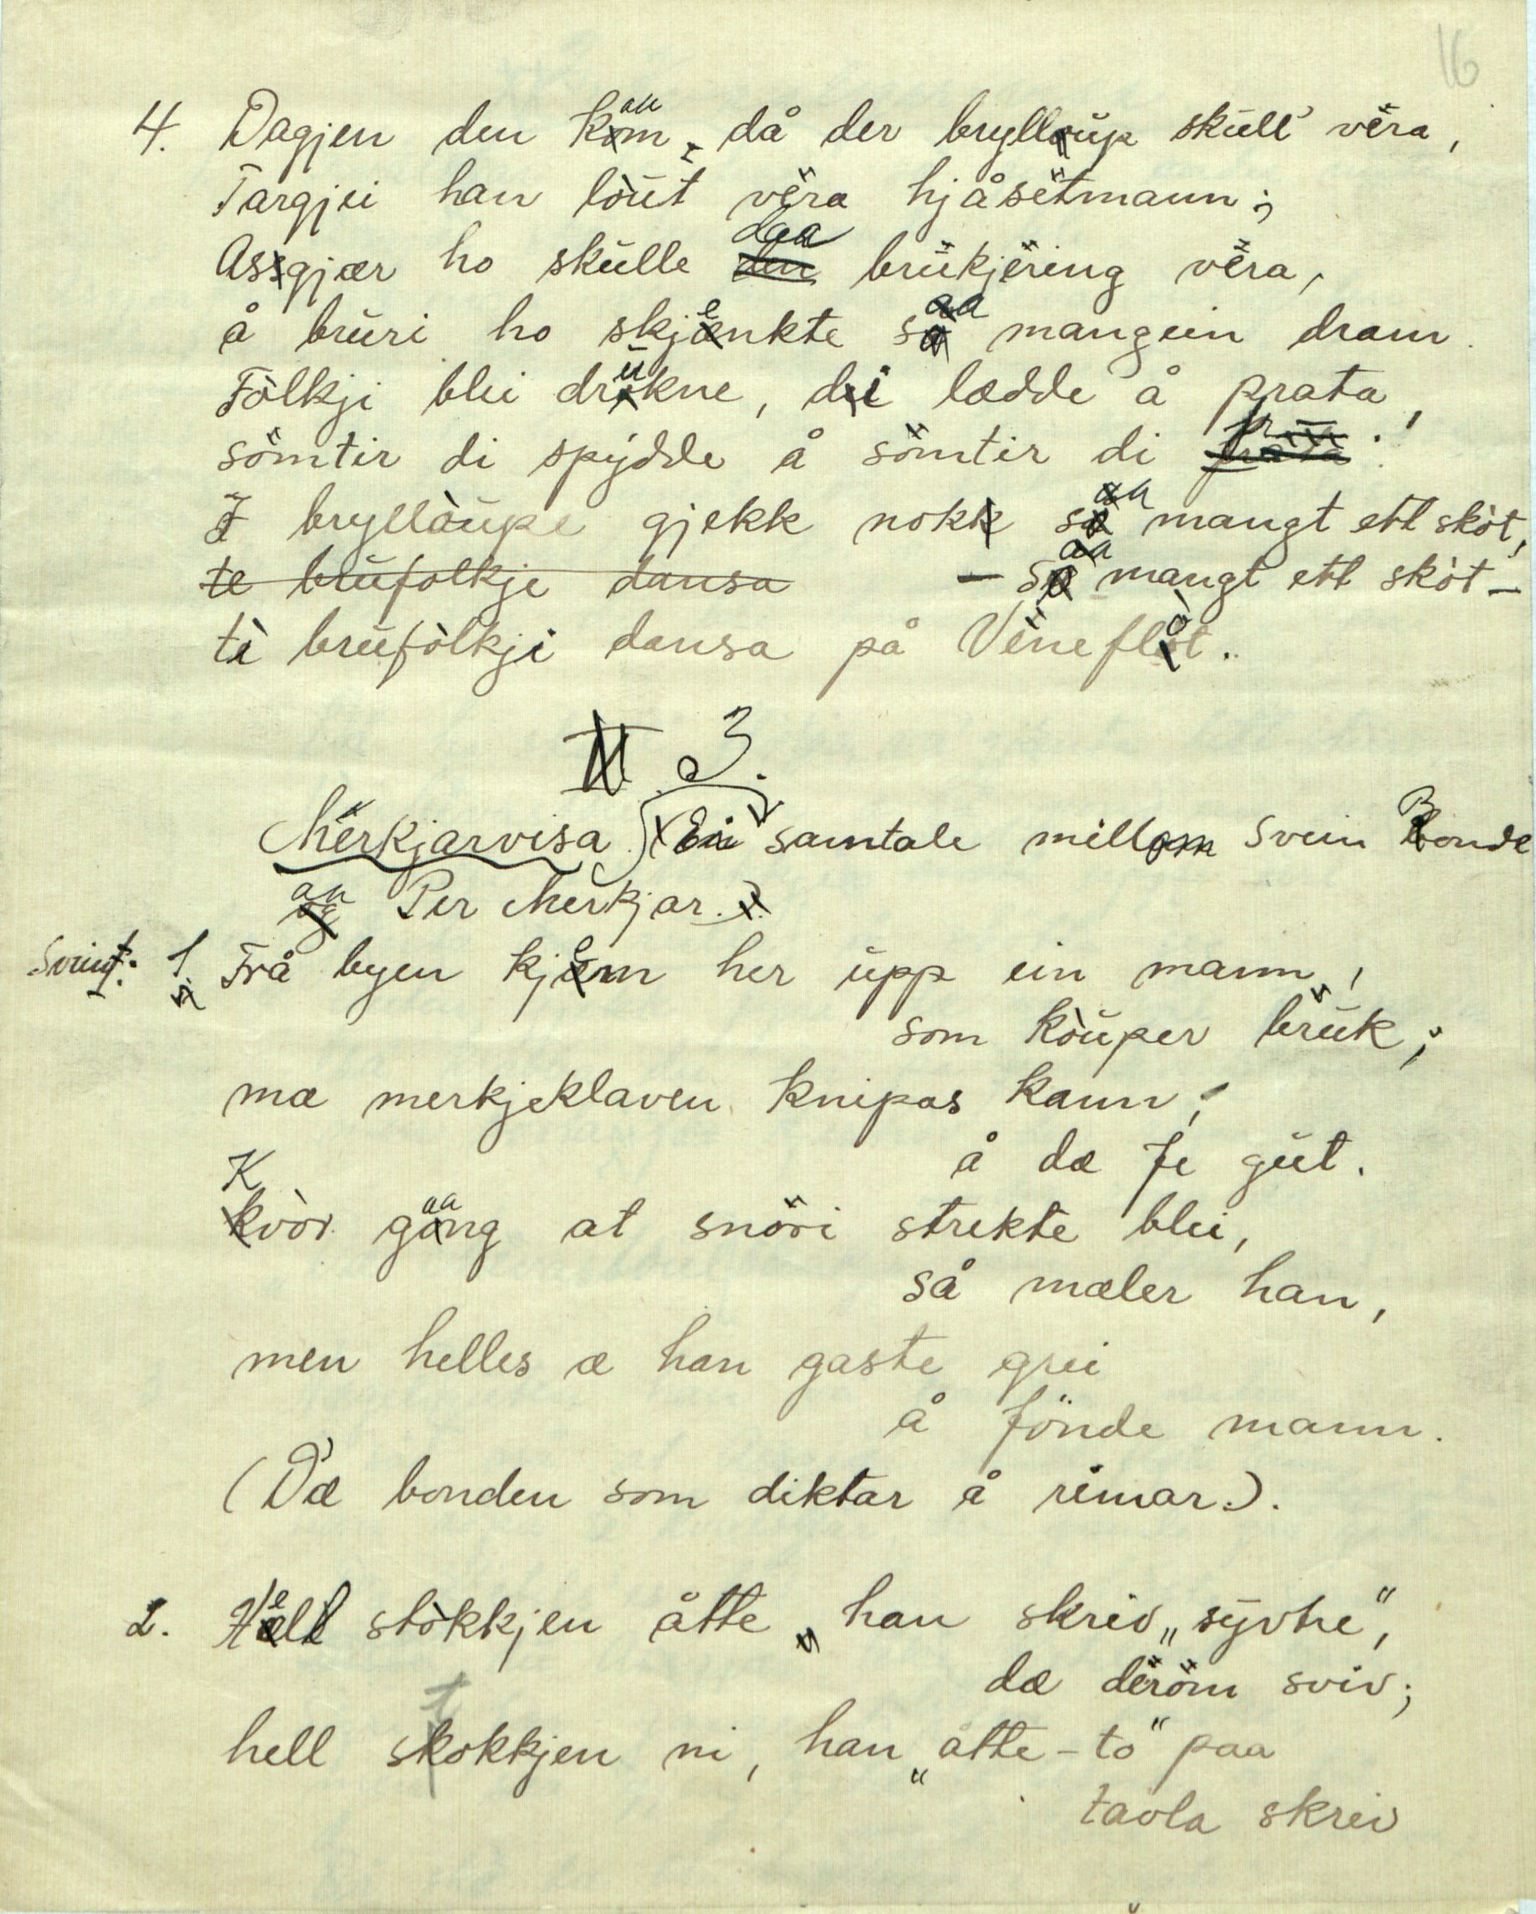 16
4. Dagjen den kaam, då der bryllöup skull' vëra,
Targjei han löut vëra hjåsëtmann;
Assgjær ho skulle daa brükjëring vëra,
å brüri ho skjenkte saa mangein dram.
Fòlkji blei drükne, di lædde å prata,
sömtir di spydde å sömtir di
I bryllòupe gjekk nokk saa mangt ett skòt,
te brüfolkje dansa — saa mangt ett skòt —
ti brüfòlkji dansa på Vëneflòt.
3.
Mërkjarvisa (Ei samtale millom Svein Bonde
aa Per Mërkjar.)
Svein: 1. Frå byen kjem her üpp ein mann,
som kòuper brük;
mæ merkjeklaven knipas kann;
å dæ fe güt.
Kvòr gaang at snöri strekte blei,
så mæler han,
men helles æ han gaste grei
å fönde mann.
(Dæ bonden som diktar å rimar.).
2. Hell stòkkjen åtte, han skreiv „syvtre",
dæ dëröm sviv;
hell stokkjen ni, han „åtte-to" paa
tavla skreiv